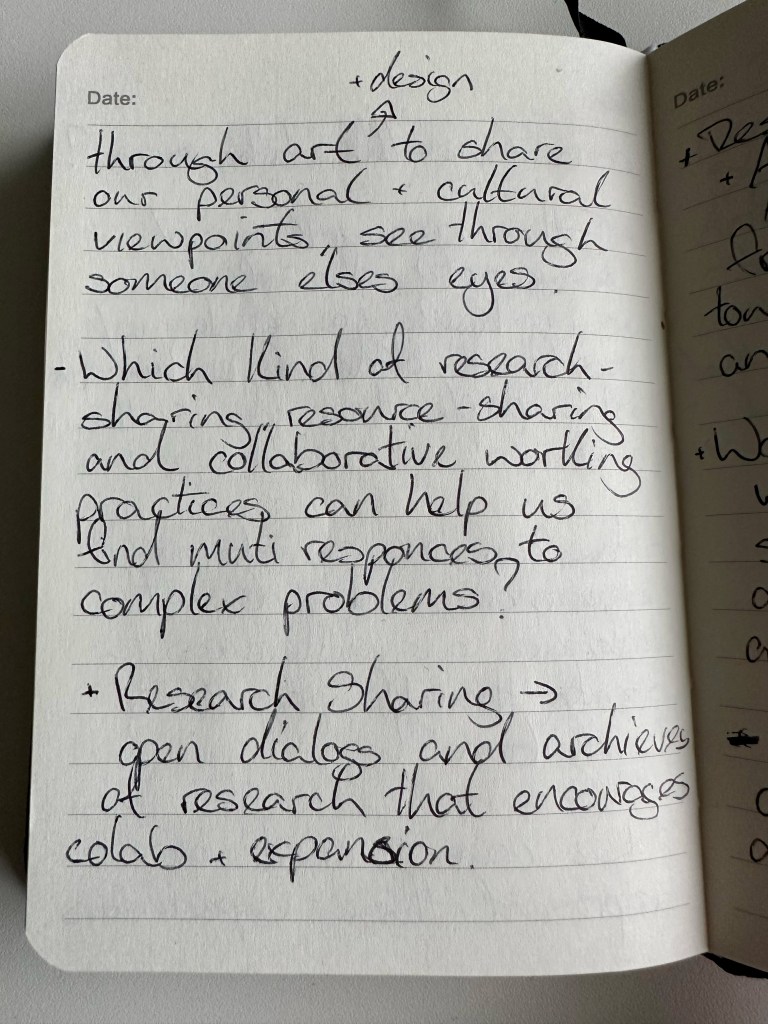 Date:
+ design
through art to share
our personal + cultural
viewpoints, see through
someone elses eyes.
- Which kind of research-
sharing, resource-sharing
and collaborative working
practices can help us
find muti responces, to
complex problems?
+ Research Sharing →
open dialogs and archieves
of research that encourages
colab + expansion.
Date:
+
+
+